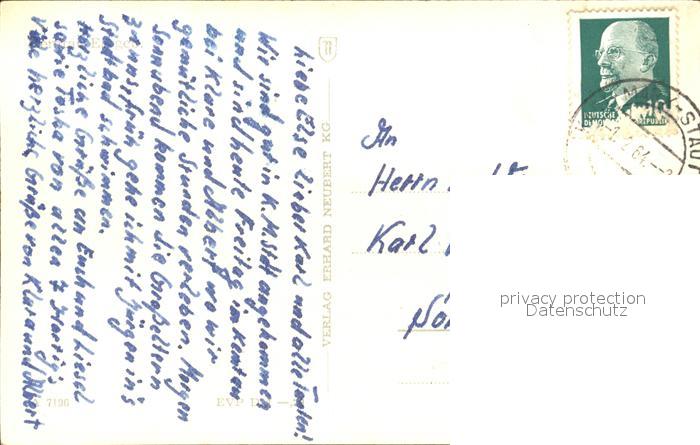 Liebe Else lieber Karl und alle Tanten!
Wir sind gut in K. M. Stadt angekommen
und sind heute Freitag im
bei Klara und Albert wo wir
gemütliche Stunden verleben. Morgen
Sonnabend kommen die Großeltern
ganz früh gehe ich mit Jürgen in's
Stadtbad schwimmen.
Herzliche Grüße an Euch und Liesel
sowie Toska von allen
Viele herzliche Grüße von Klara und Albert
VERLAG ERHARD NEUBERT KG
7196
EVP
An
Herrn
Karl
DEUTSCHE
privacy protection
Datenschutz